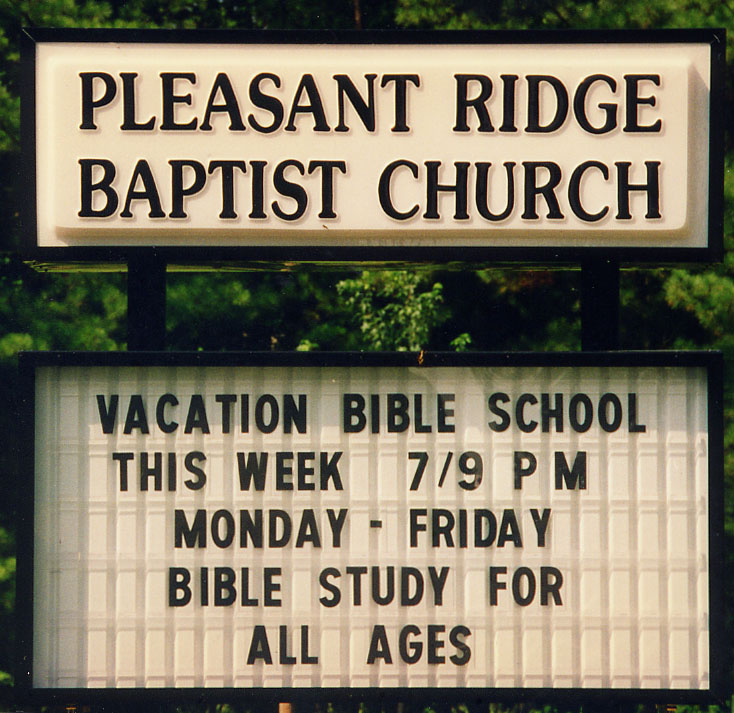 PLEASANT RIDGE
BAPTIST CHURCH
VACATION BIBLE SCHOOL
THIS WEEK 7/9 P M
MONDAY - FRIDAY
BIBLE STUDY FOR
ALL AGES